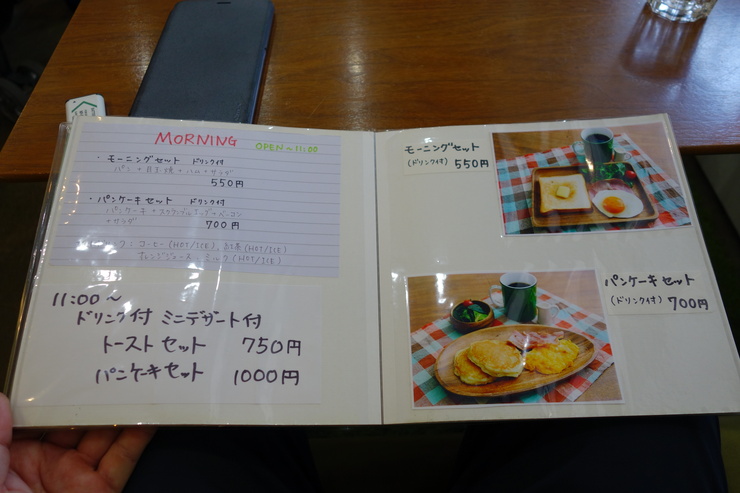 MORNING
OPEN～11:00
・モーニングセット ドリンク付
パン+目玉焼+ハム+サラダ
550円
・パンケーキセット ドリンク付
パンケーキ+スクランブルエッグ+ベーコン
+サラダ
700円
コーヒー(HOT/ICE)、紅茶(HOT/ICE)
オレンジジュース、ミルク(HOT/ICE)
11:00～
ドリンク付 ミニデザート付
トーストセット 750円
パンケーキセット 1000円
モーニングセット
(ドリンク付) 550円
パンケーキセット
(ドリンク付) 700円